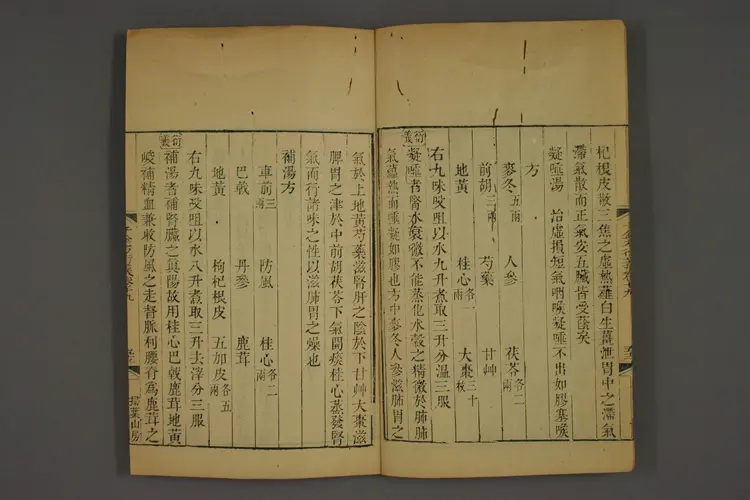 杞根皮散三焦之虛熱薤白生薑泄胃中之滯氣
滯氣散而正氣安五臟皆受蔭矣
凝唾湯 治虛損短氣咽喉凝唾不出如膠塞喉
方
麥冬五兩 人參 茯苓各二兩
前胡三兩 芍藥 甘艸
地黃 桂心各一兩 大棗三十枚
右九味㕮咀以水九升煮取三升分溫三服
衍義
凝唾者腎水衰微不能蒸化水穀之精微於肺肺
氣蘊熱而唾凝如膠也方中麥冬人參滋肺胃之
氣於上地黃芍藥滋腎肝之陰於下甘艸大棗滋
脾胃之津於中前胡茯苓下氣開痰桂心蒸發腎
氣而行諸味之性以滋肺胃之燥也
補湯方
車前三兩 防風 桂心各二兩
巴戟 丹參 鹿茸
地黃 枸杞根皮 五加皮各五兩
右九味㕮咀以水八升煮取三升去滓分三服
衍義
補湯者補腎臟之眞陽故用桂心巴戟鹿茸地黃
峻補精血兼取防風之走督脈利腰脊爲鹿茸之
掃葉山房